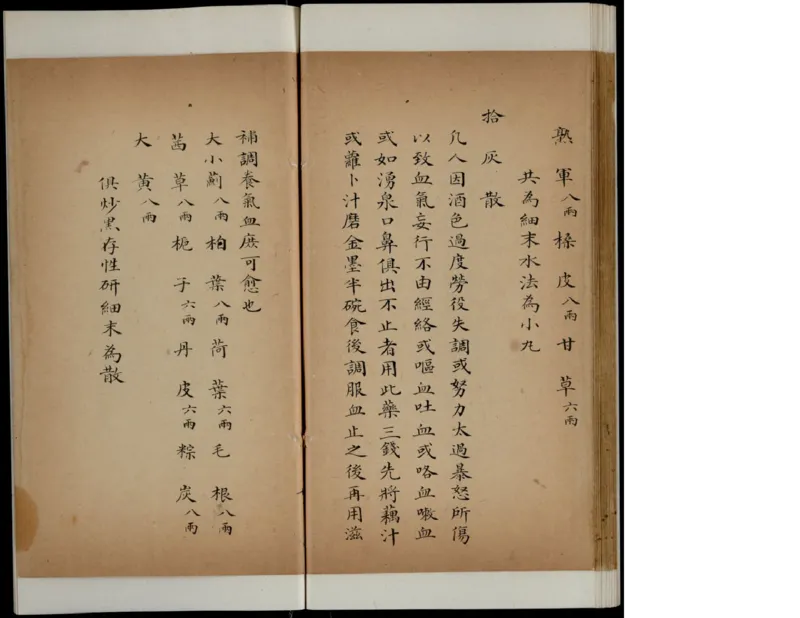 熟軍八兩 槡皮八兩 甘草六兩
共為細末水法為小丸
拾灰散
凡人因酒色過度勞役失調或努力太過暴怒所傷
以致血氣妄行不由經絡或嘔血吐血或咯血嗽血
或如湧泉口鼻俱出不止者用此藥三錢先將藕汁
或蘿卜汁磨金墨半碗食後調服血止之後再用滋
補調養氣血庶可愈也
大小薊八兩 柏葉八兩 荷葉六兩 毛根八兩
茜草八兩 梔子六兩 丹皮六兩 粽炭八兩
大黄八兩
俱炒黑存性研細末為散